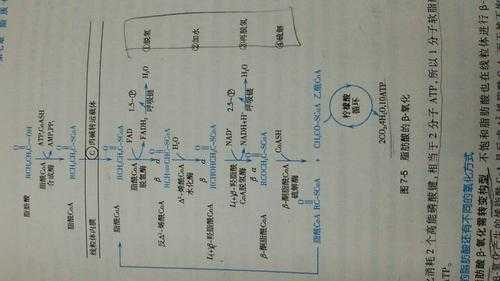 ①脱氢
②加水
③再脱氢
④硫解
脂肪酸
RCH₂CH₂C—OH
脂酰CoA
合成酶
ATP,CoASH
AMP,PPi
脂酰CoA
RCH₂CH₂C—SCoA
线粒体内膜
肉碱转运载体
脂酰CoA
RCH₂CH₂C—SCoA
脂酰CoA
脱氢酶
FAD
FADH₂
1.5~Ⓟ
呼吸链
H₂O
反Δ²-烯酰CoA
Δ²-烯酰CoA
水化酶
H₂O
L(+)β-羟脂酰CoA
L(+)β-羟脂酰
CoA脱氢酶
NAD⁺
NADH+H⁺
2.5~Ⓟ
呼吸链
H₂O
β-酮脂酰CoA
β-酮脂酰CoA
硫解酶
CoASH
脂酰CoA
RC~SCoA
CH₃CO~SCoA
乙酰CoA
柠檬酸
循环
2CO₂,4H₂O,10ATP
图 7-5 脂肪酸的 β-氧化
消耗 2 个高能磷酸键,相当于 2 分子 ATP,所以 1 分子软脂
ATP。
的脂肪酸还有不同的氧化方式
脂肪酸 β-氧化需转变构型 不饱和脂肪酸也在线粒体进行 β-